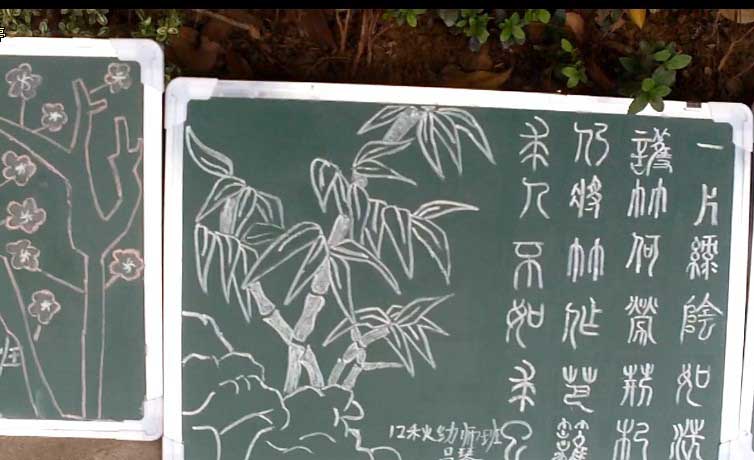 一片綠陰如洗
護竹何勞荊杞
仍將竹作芭籬
求人不如求己
12秋幼师班